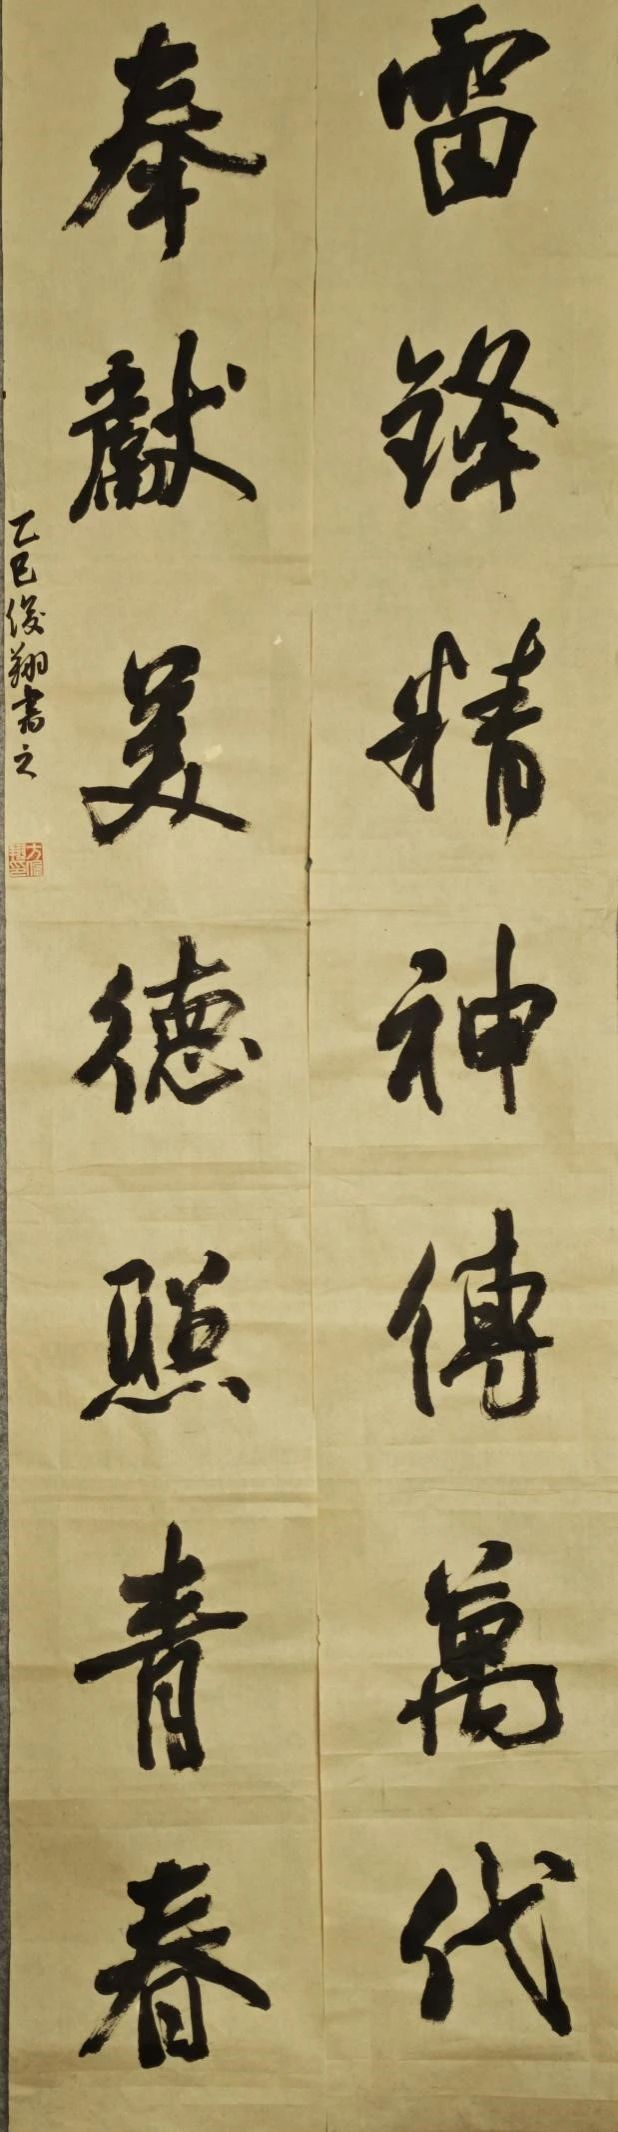 雷鋒精神傳萬代
奉獻美德照青春
乙巳俊翔書之